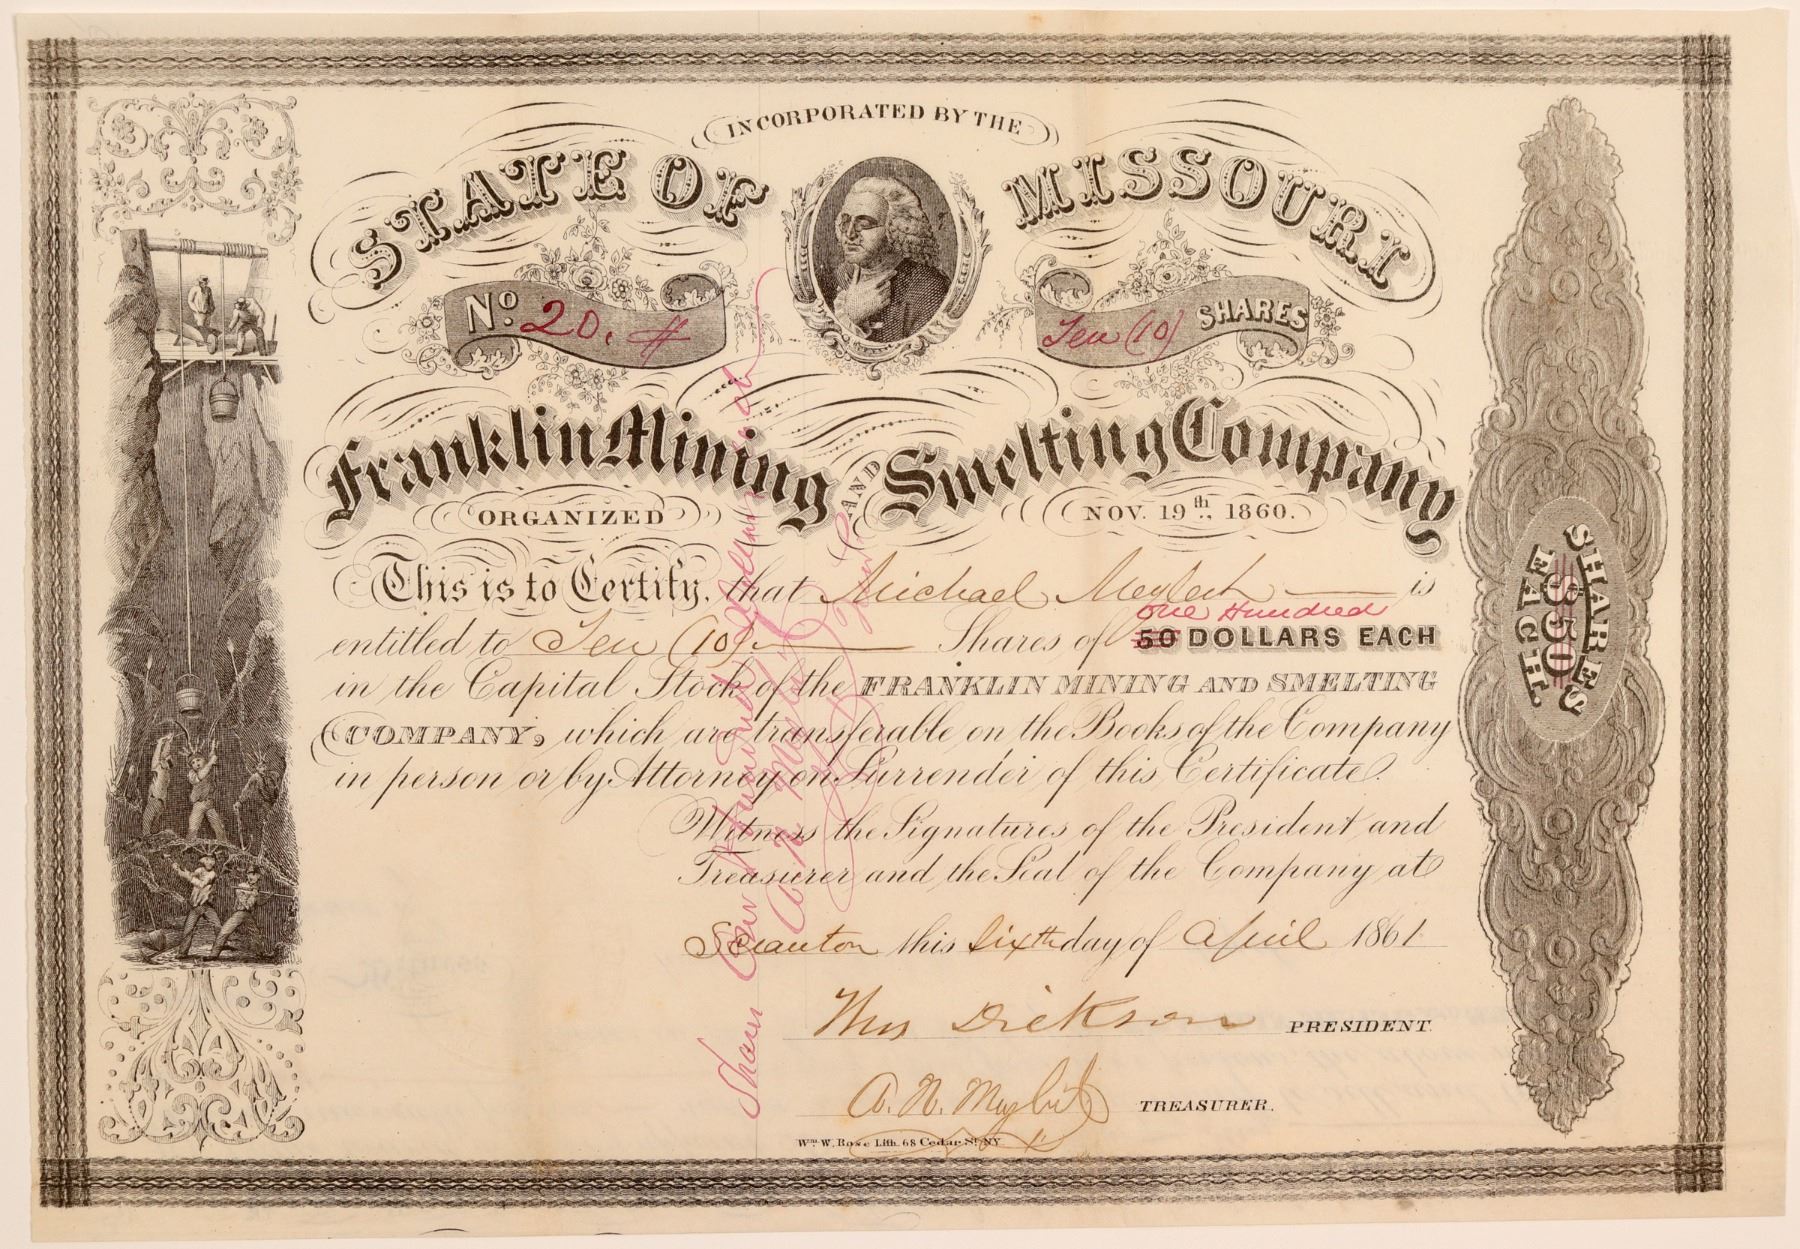 INCORPORATED BY THE
STATE OF MISSOURI
No. 20. #
Ten (10) SHARES
Franklin Mining AND Smelting Company
ORGANIZED NOV. 19th., 1860.
This is to Certify, that Michael is
entitled to Ten (10) Shares of One Hundred 50 DOLLARS EACH
in the Capital Stock of the FRANKLIN MINING AND SMELTING
COMPANY, which are transferable on the Books of the Company
in person or by Attorney on Surrender of this Certificate.
Witness the Signatures of the President and
Treasurer and the Seal of the Company at
Scranton this Sixth day of April 1861
Thos Dickson PRESIDENT.
A. N. TREASURER.
Wm. W. Rose Lith. 68 Cedar St. NY
SHARES
$50
EACH.
Shares One Hundred Dollars each
A. N.